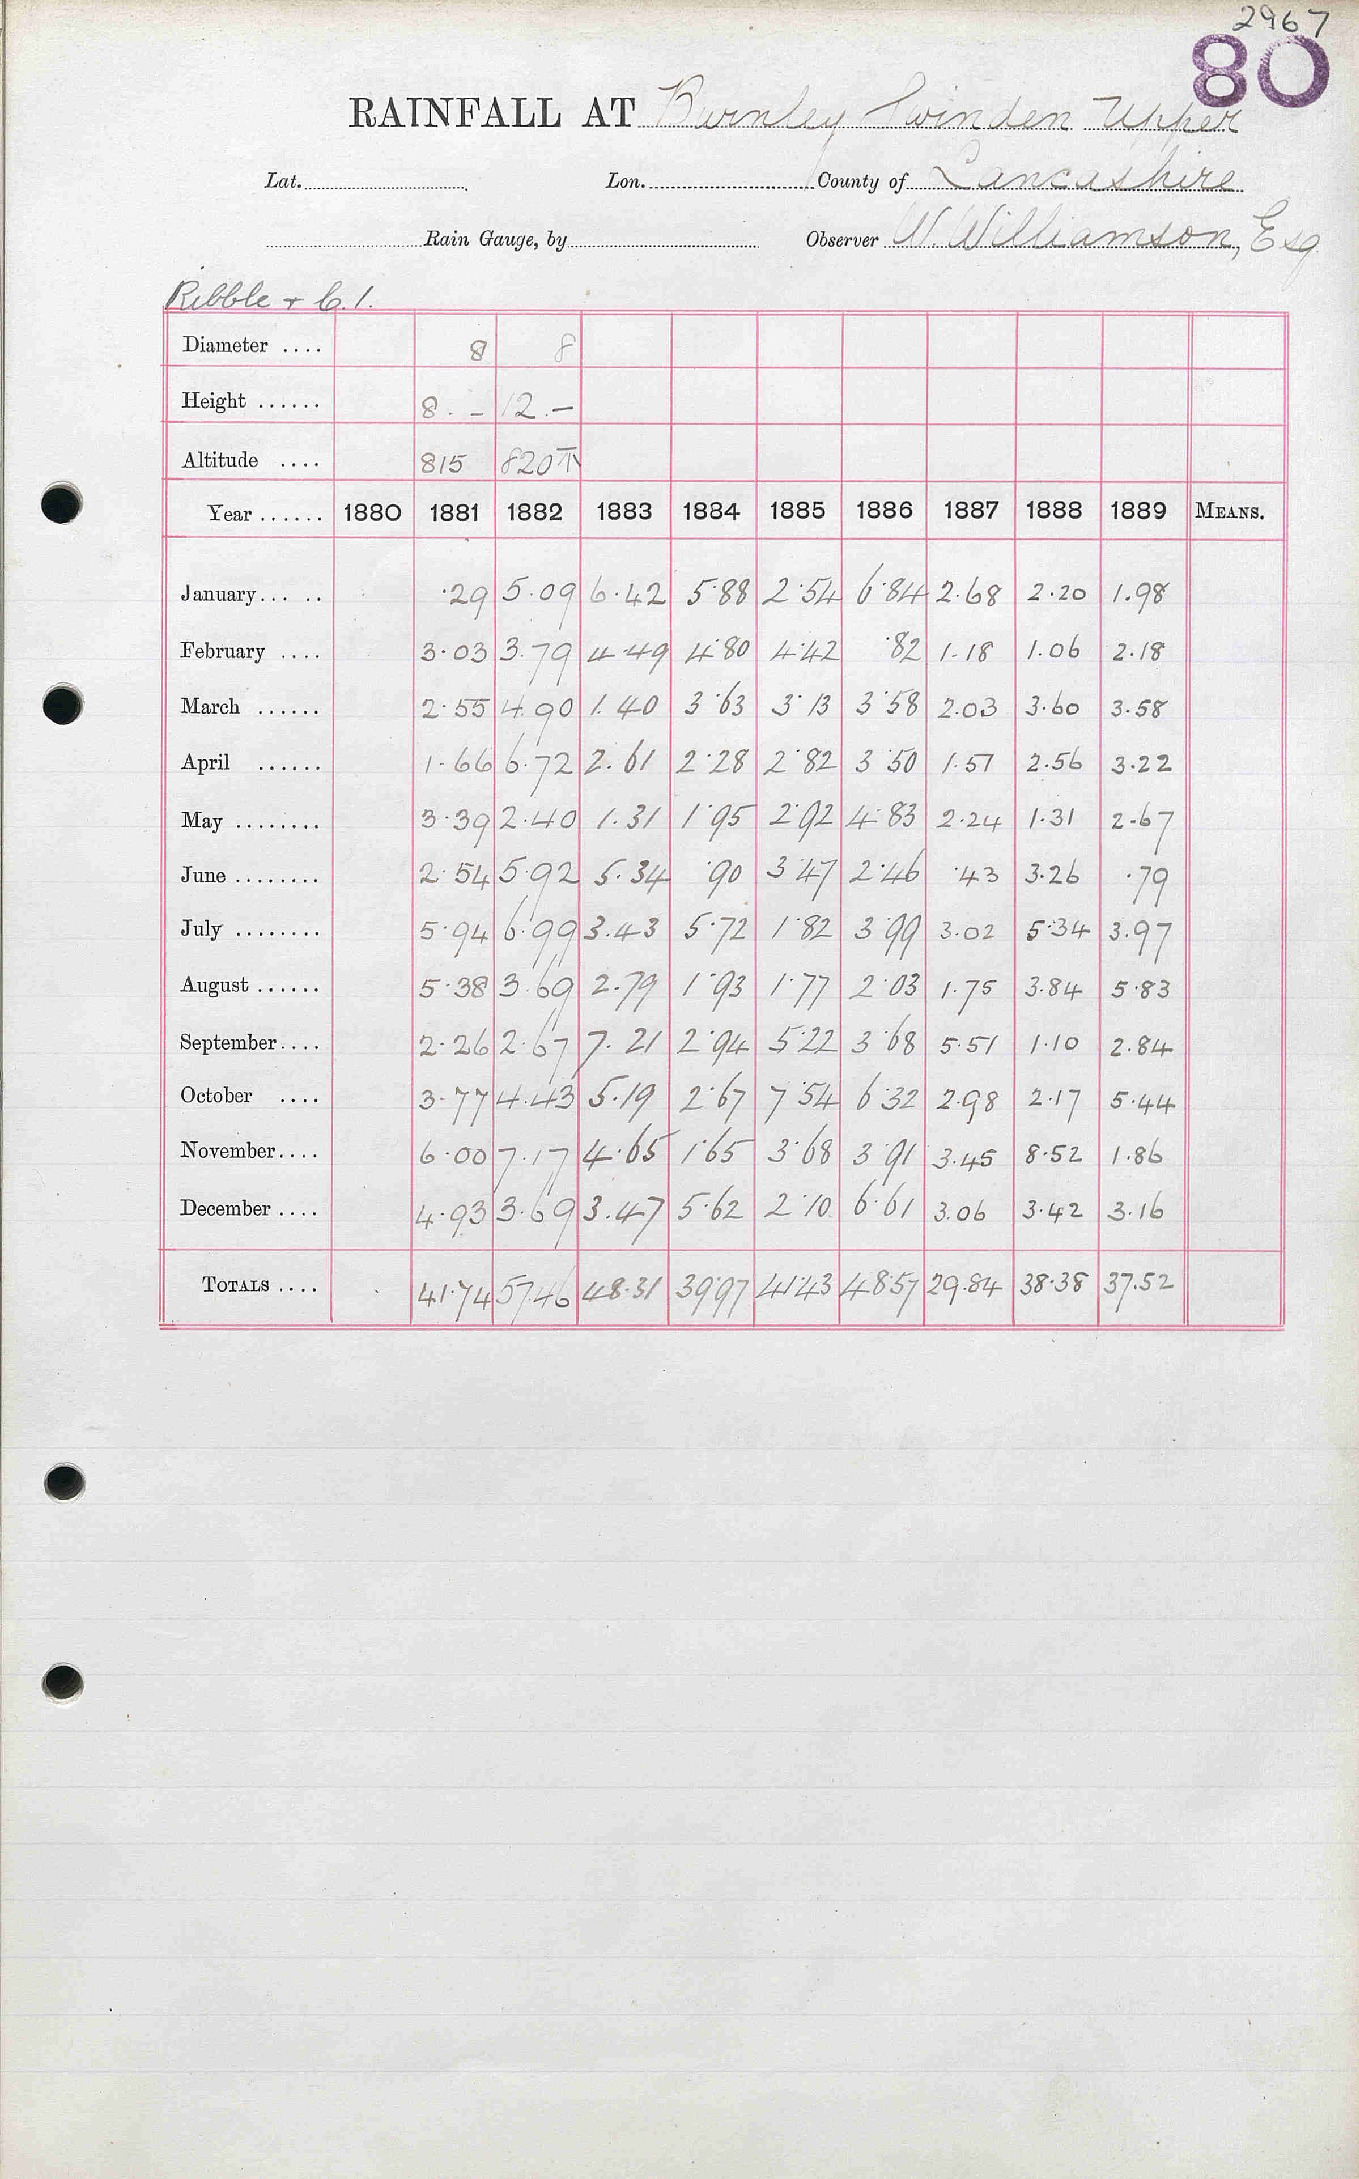 2967
80
RAINFALL AT Burnley Swinden Upper
Lat. Lon. County of Lancashire
Rain Gauge, by Observer W. Williamson, Esq
Ribble + C.1.
Diameter .... 8 8
Height ...... 8.- 12.-
Altitude .... 815 820T
Year ...... 1880 1881 1882 1883 1884 1885 1886 1887 1888 1889 MEANS.
January... .. ·29 5.09 6.42 5.88 2.54 6.84 2.68 2.20 1.98
February .... 3.03 3.79 4.49 4.80 4.42 .82 1.18 1.06 2.18
March ...... 2.55 4.90 1.40 3.63 3.13 3.58 2.03 3.60 3.58
April ...... 1.66 6.72 2.61 2.28 2.82 3.50 1.57 2.56 3.22
May ........ 3.39 2.40 1.31 1.95 2.92 4.83 2.24 1.31 2.67
June ........ 2.54 5.92 5.34 .90 3.47 2.46 .43 3.26 .79
July ........ 5.94 6.99 3.43 5.72 1.82 3.99 3.02 5.34 3.97
August ...... 5.38 3.69 2.79 1.93 1.77 2.03 1.75 3.84 5.83
September.... 2.26 2.67 7.21 2.94 5.22 3.68 5.51 1.10 2.84
October .... 3.77 4.43 5.19 2.67 7.54 6.32 2.98 2.17 5.44
November.... 6.00 7.17 4.65 1.65 3.68 3.91 3.45 8.52 1.86
December .... 4.93 3.69 3.47 5.62 2.10 6.61 3.06 3.42 3.16
TOTALS .... 41.74 57.46 48.31 39.97 41.43 48.57 29.84 38.38 37.52